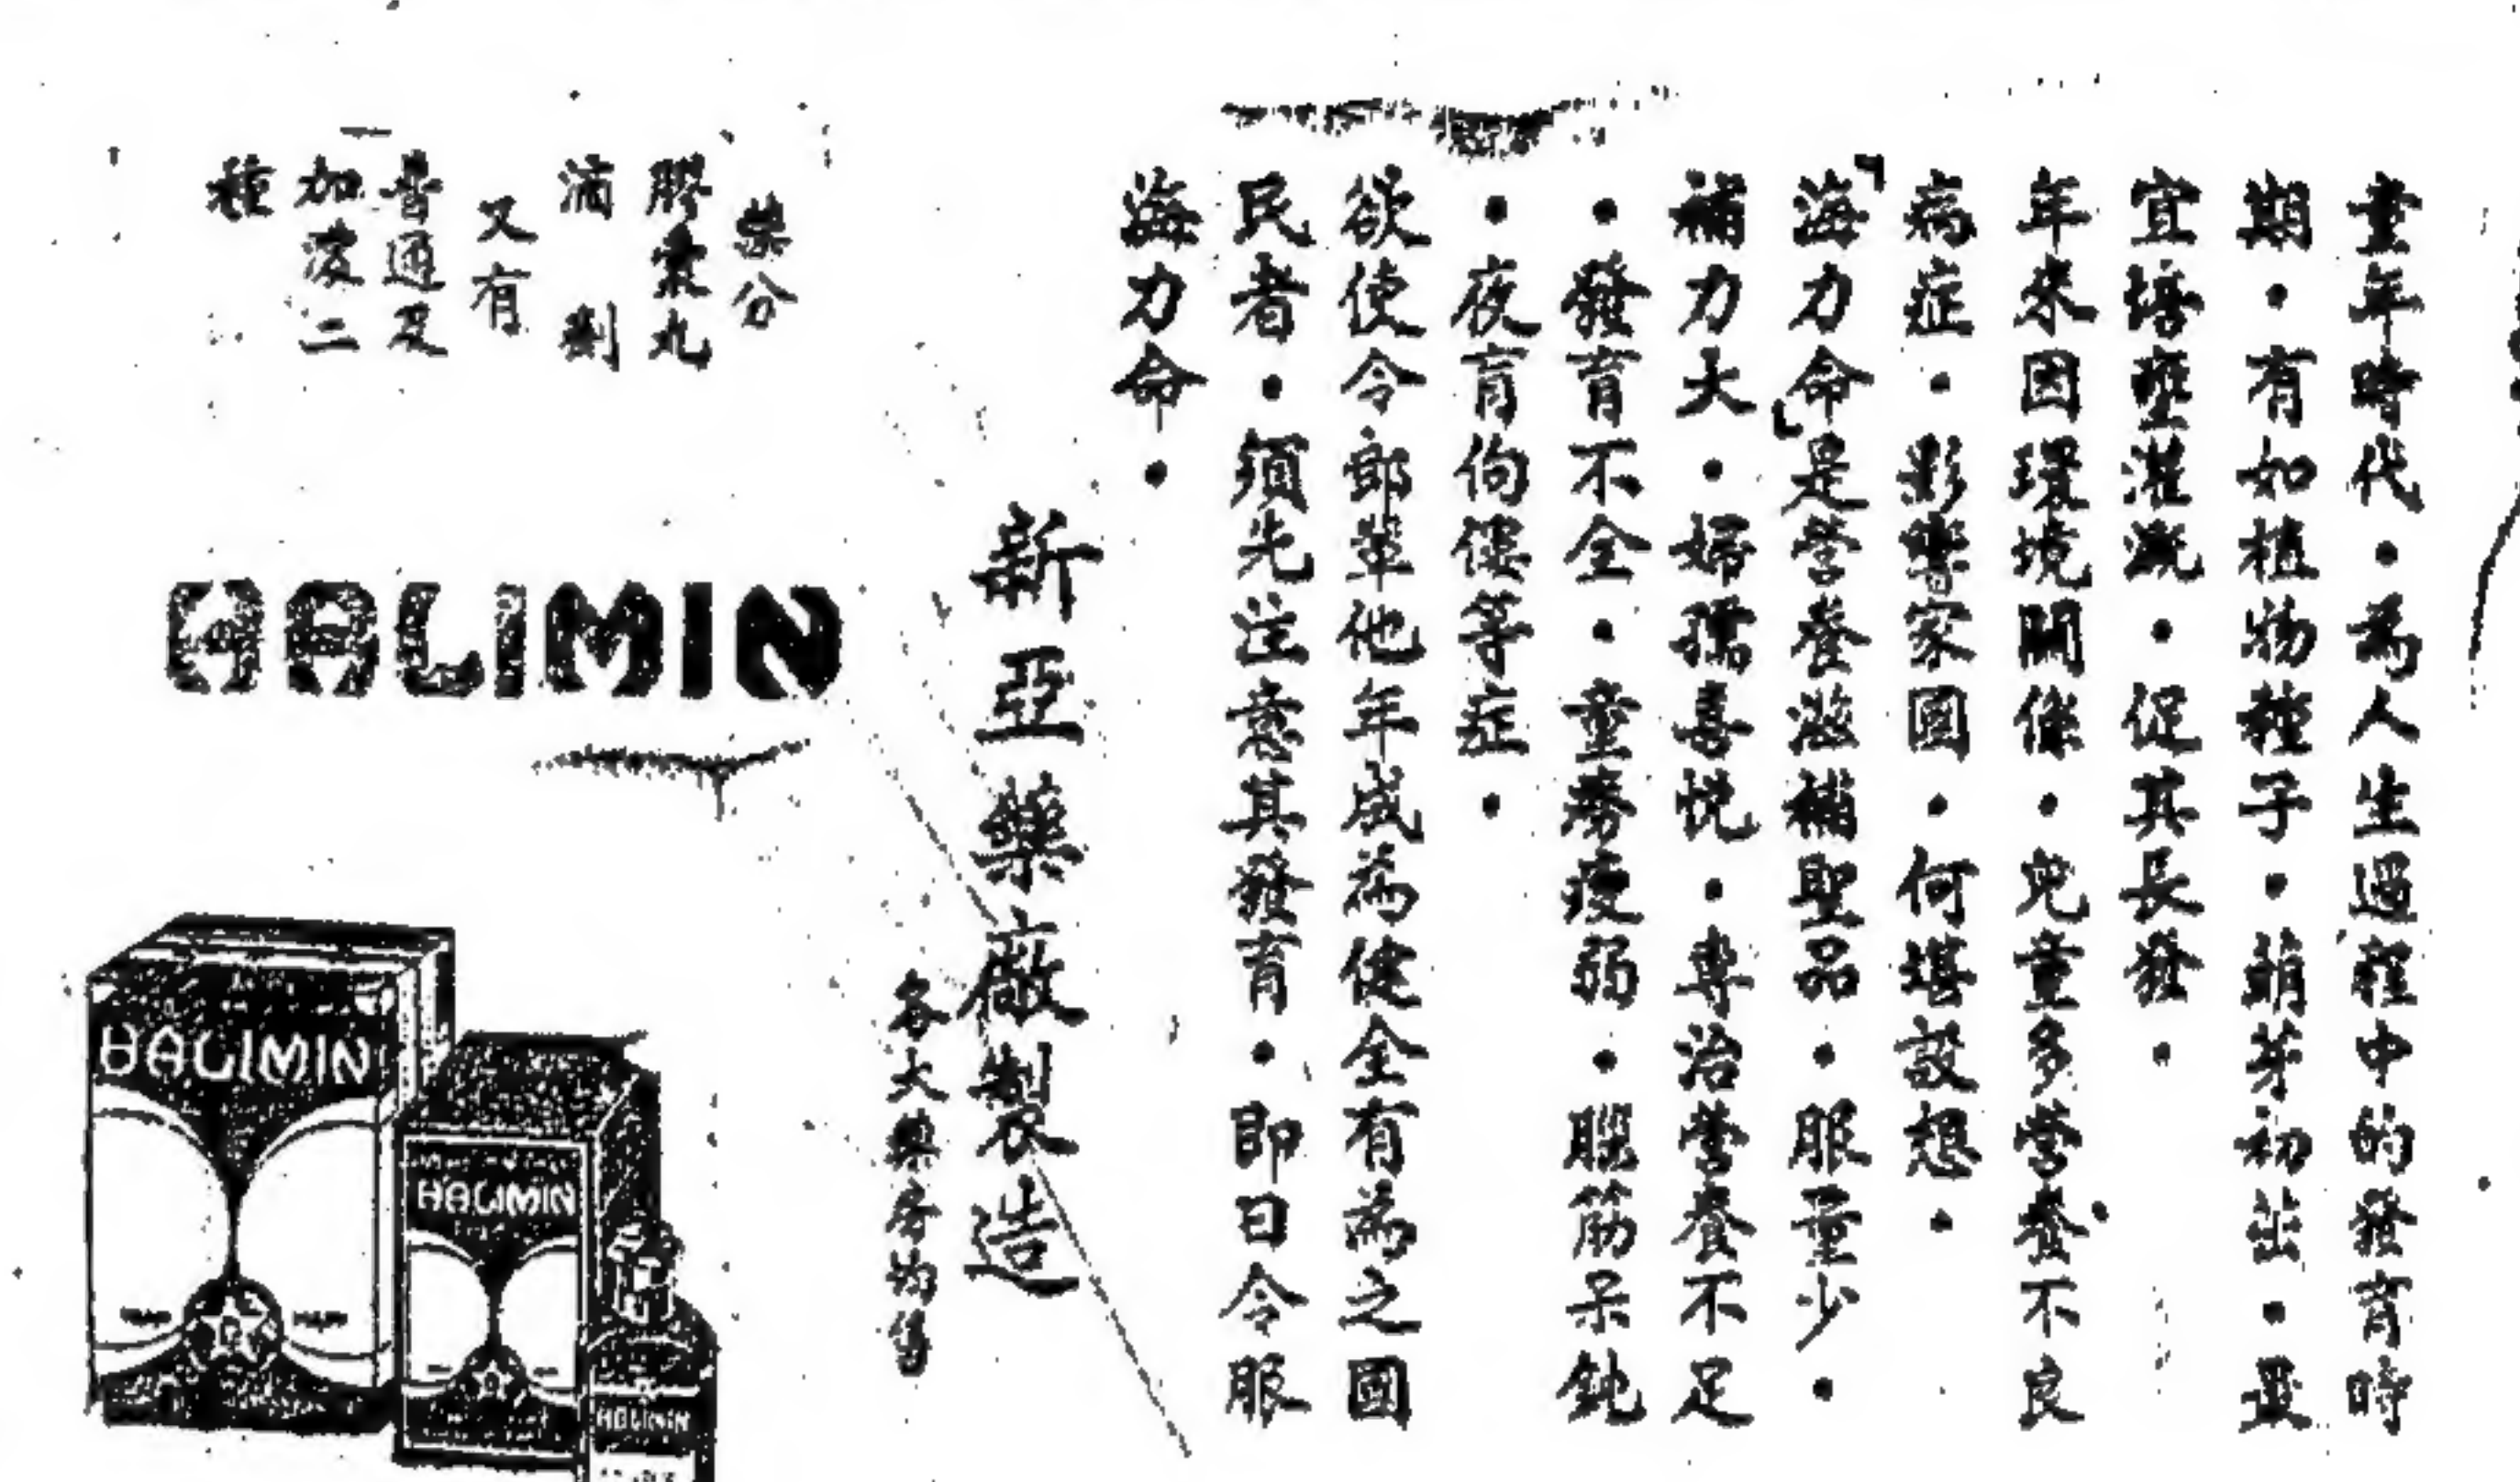 童年時代・為人生過程中的發育時
期・有如植物種子・萌芽初出・最
宜培壅灌溉・促其長發・
年來因環境關係・兒童多營養不良
病症・影響家國・何堪設想・
「海力命」是營養滋補聖品・服量少・
補力大・婦孺喜悅・專治營養不足
・發育不全・童癆疲弱・腦筋呆鈍
・夜盲佝僂等症・
欲使令郎輩他年成為健全有為之國
民者・須先注意其發育・即日令服
海力命・
新亞藥廠製造
各大藥房均售
藥分
膠囊丸
滴劑
又有
普通及
加濃二
種
HALIMIN
HALIMIN
HALIMIN
HALIMIN